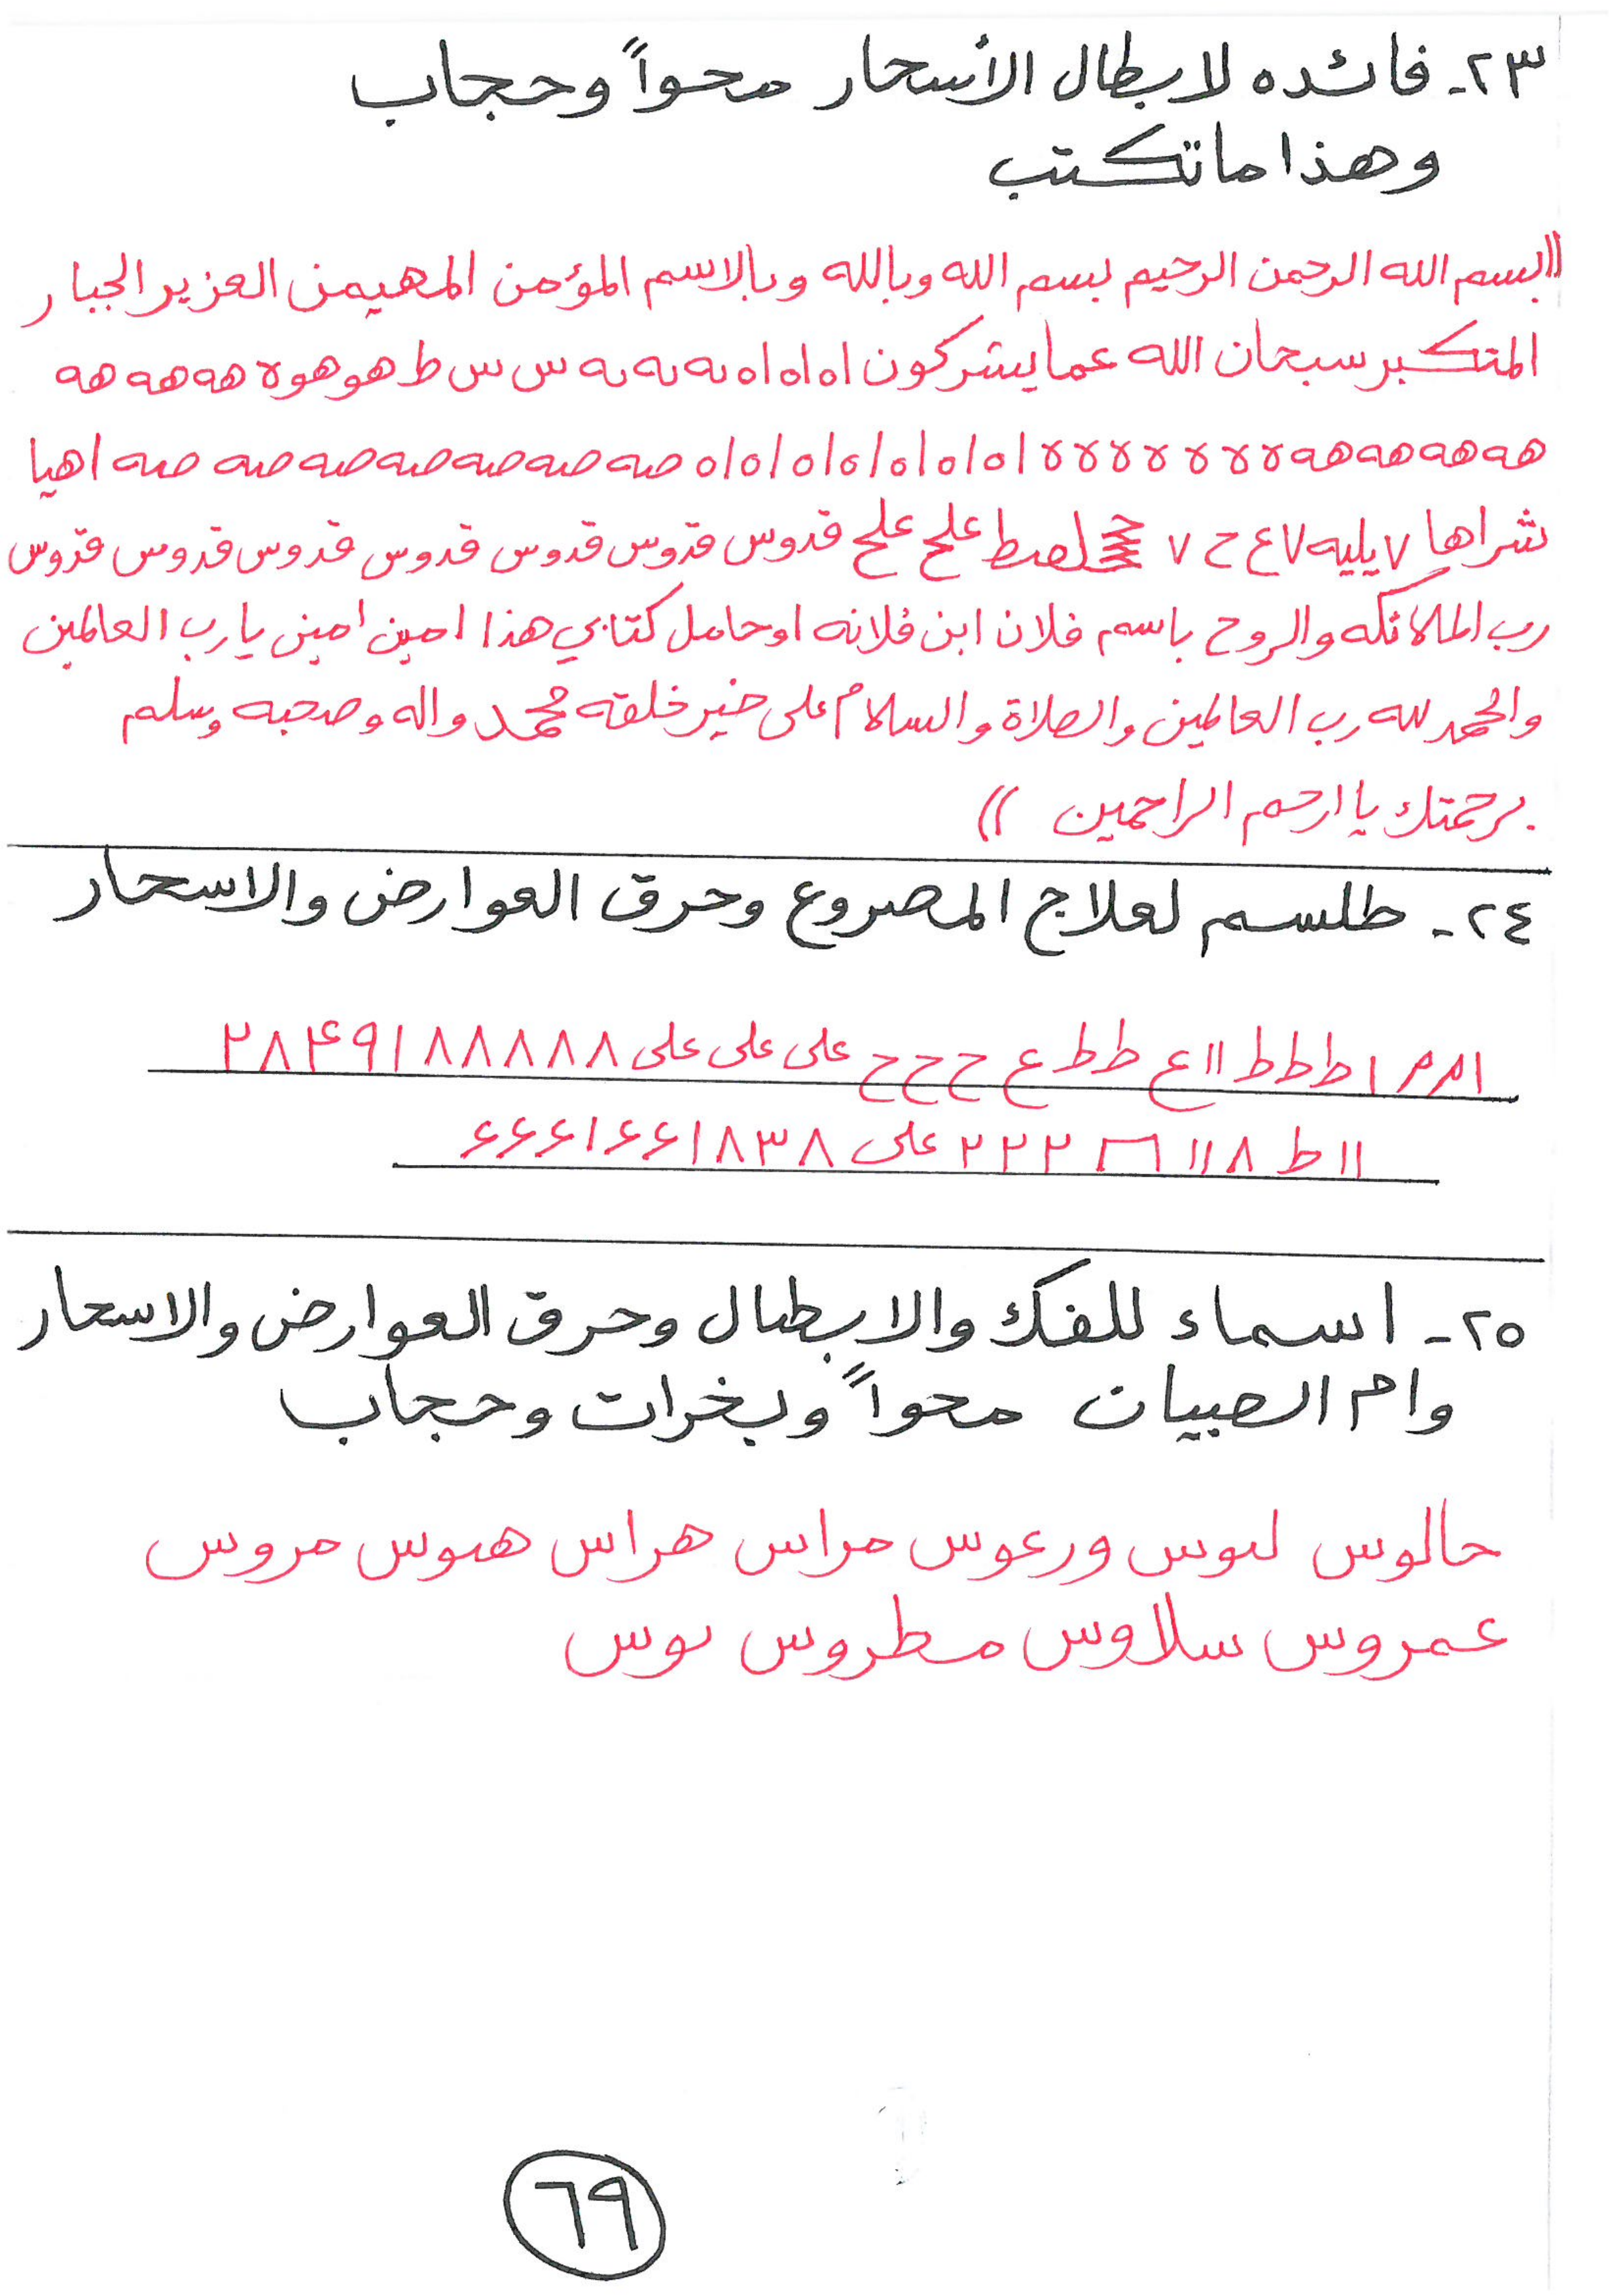 ٢٣- فائده لابطال الأسحار محواً وحجاب
وهذا ما تكتب
((بسم الله الرحمن الرحيم بسم الله وبالله وبالاسم المؤمن المهيمن العزيز الجبار
المتكبر سبحان الله عما يشركون اه اه اه به به به س س ط هو هو ه هه هه هه
هه هه هه هه ه ه ه ه ه ه ه اه اه اه اه اه اه اه صه صه صه صه صه صه صه اهيا
شراها ٧ يليه ٧ ع ح ٧ لصط علج علج قدوس قدوس قدوس قدوس قدوس قدوس قدوس
رب الملائكه والروح باسم فلان ابن فلانه او حامل كتابي هذا امين امين يا رب العالمين
والحمد لله رب العالمين والصلاة والسلام على خير خلقه محمد واله وصحبه وسلم
برحمتك يا ارحم الراحمين ))
٢٤- طلسم لعلاج المصروع وحرق العوارض والاسحار
ام م ا ط ط ط ١١ ع ط ط ع ح ح ح على على على ٢٨۴٩١٨٨٨٨٨
١١ ط ٨ ١١ ٢٢٢ على ۶۶۶١۶۶١٨٣٨
٢٥- اسماء للفك والابطال وحرق العوارض والاسحار
وام الصبيان محواً وبخرات وحجاب
حالوس لىوس ورعوس مراس هراس هىوس مروس
عمروس سلاوس مطروس ىوس
٦٩